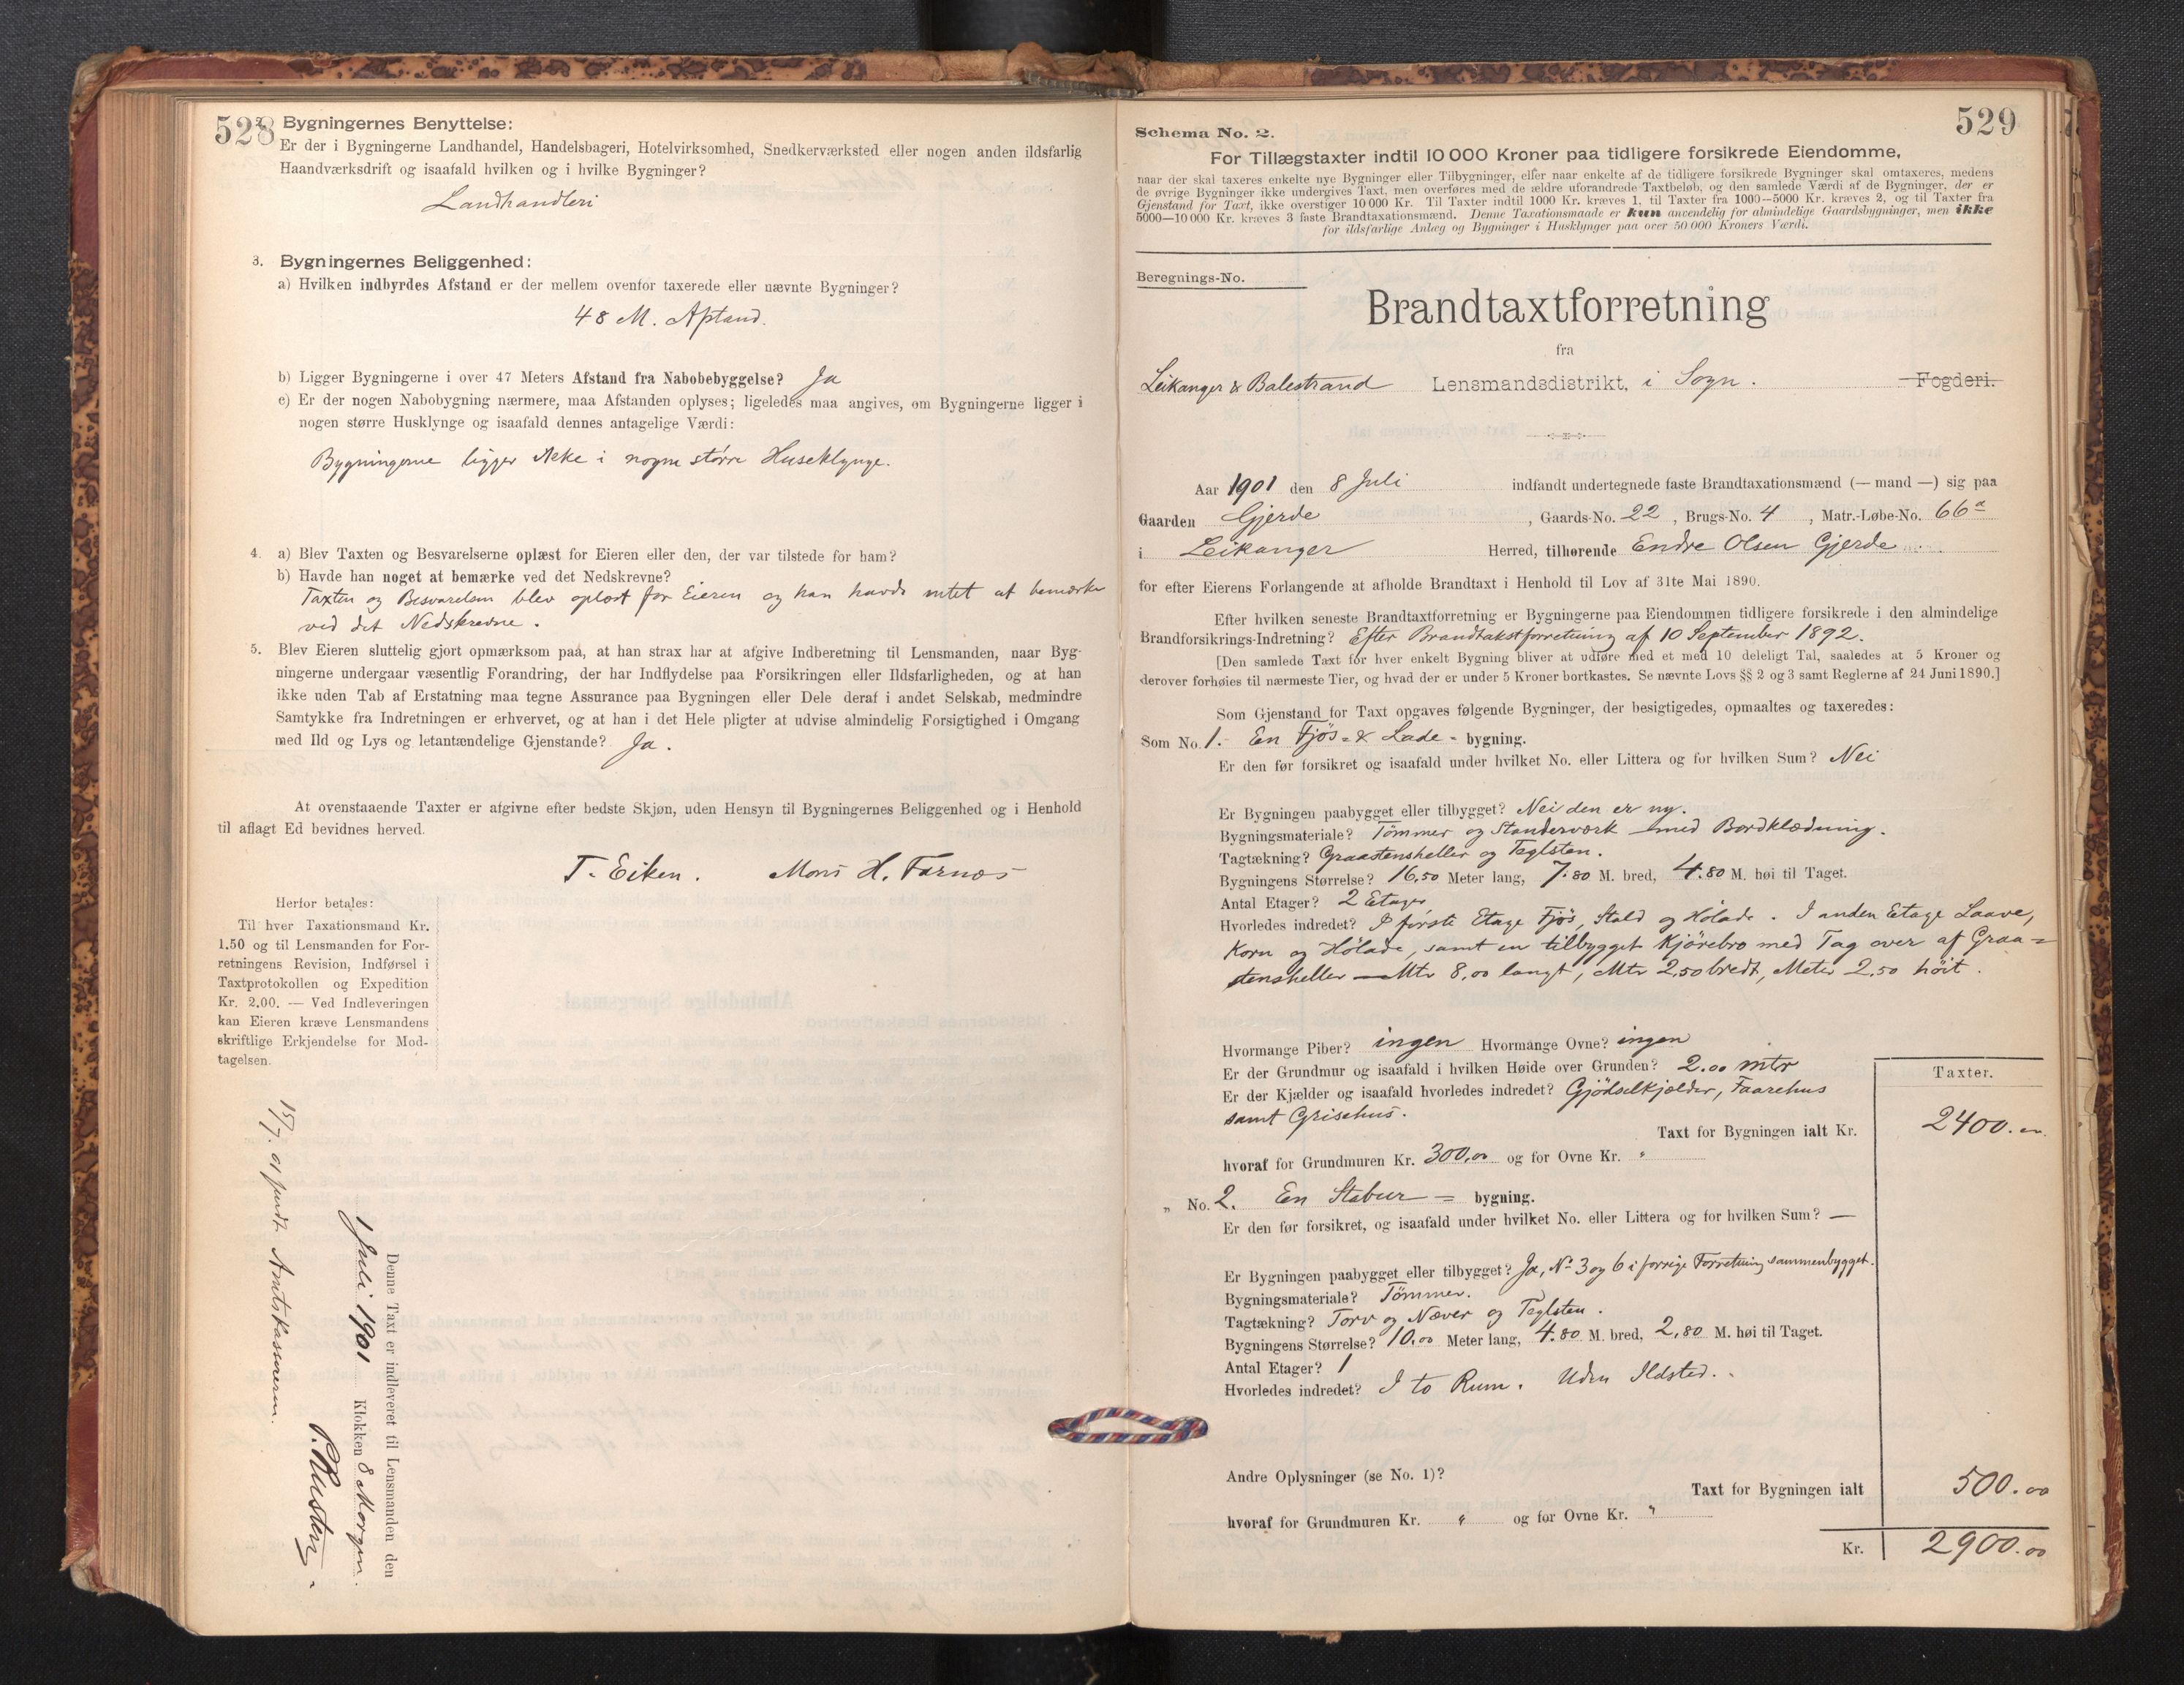 528
2. Bygningernes Benyttelse:
Er der i Bygningerne Landhandel, Handelsbageri, Hotelvirksomhed, Snedkerværksted eller nogen anden ildsfarlig
Haandværksdrift og isaafald hvilken og i hvilke Bygninger?
Landhandleri
3. Bygningernes Beliggenhed:
a) Hvilken indbyrdes Afstand er der mellem ovenfor taxerede eller nævnte Bygninger?
48 M. Afstand.
b) Ligger Bygningerne i over 47 Meters Afstand fra Nabobebyggelse? Ja
c) Er der nogen Nabobygning nærmere, maa Afstanden oplyses; ligeledes maa angives, om Bygningerne ligger i
nogen større Husklynge og isaafald dennes antagelige Værdi:
Bygningerne ligger ikke i nogen større Huseklynge.
4. a) Blev Taxten og Besvarelserne oplæst for Eieren eller den, der var tilstede for ham?
b) Havde han noget at bemærke ved det Nedskrevne?
Taxten og Besvarelsen blev oplæst for Eieren og han havde intet at bemærke
ved det Nedskrevne.
5. Blev Eieren sluttelig gjort opmærksom paa, at han strax har at afgive Indberetning til Lensmanden, naar Byg-
ningerne undergaar væsentlig Forandring, der har Indflydelse paa Forsikringen eller Ildsfarligheden, og at han
ikke uden Tab af Erstatning maa tegne Assurance paa Bygningen eller Dele deraf i andet Selskab, medmindre
Samtykke fra Indretningen er erhvervet, og at han i det Hele pligter at udvise almindelig Forsigtighed i Omgang
med Ild og Lys og letantændelige Gjenstande? Ja.
At ovenstaaende Taxter er afgivne efter bedste Skjøn, uden Hensyn til Bygningernes Beliggenhed og i Henhold
til aflagt Ed bevidnes herved.
T. Eiken. Mons H. Farnes
Herfor betales:
Til hver Taxationsmand Kr.
1.50 og til Lensmanden for For-
retningens Revision, Indførsel i
Taxtprotokollen og Expedition
Kr. 2.00. — Ved Indleveringen
kan Eieren kræve Lensmandens
skriftlige Erkjendelse for Mod-
tagelsen.
Denne Taxt er indleveret til Lensmanden den
1 Juli 1901 Klokken 8 Morgen.
15/7. 01 sendt Amtskassereren.
529
Schema No. 2.
For Tillægstaxter indtil 10 000 Kroner paa tidligere forsikrede Eiendomme,
naar der skal taxeres enkelte nye Bygninger eller Tilbygninger, eller naar enkelte af de tidligere forsikrede Bygninger skal omtaxeres, medens
de øvrige Bygninger ikke undergives Taxt, men overføres med de ældre uforandrede Taxtbeløb, og den samlede Værdi af de Bygninger, der er
Gjenstand for Taxt, ikke overstiger 10 000 Kr. Til Taxter indtil 1000 Kr. kræves 1, til Taxter fra 1000—5000 Kr. kræves 2, og til Taxter fra
5000—10 000 Kr. kræves 3 faste Brandtaxationsmænd. Denne Taxationsmaade er kun anvendelig for almindelige Gaardsbygninger, men ikke
for ildsfarlige Anlæg og Bygninger i Husklynger paa over 50 000 Kroners Værdi.
Beregnings-No.
Brandtaxtforretning
fra
Leikanger & Balestrand Lensmandsdistrikt, i Sogn. Fogderi.
Aar 1901 den 8 Juli indfandt undertegnede faste Brandtaxationsmænd (— mand —) sig paa
Gaarden Gjerde, Gaards-No. 22, Brugs-No. 4, Matr.-Løbe-No. 66a
i Leikanger Herred, tilhørende Endre Olsen Gjerde.
for efter Eierens Forlangende at afholde Brandtaxt i Henhold til Lov af 31te Mai 1890.
Efter hvilken seneste Brandtaxtforretning er Bygningerne paa Eiendommen tidligere forsikrede i den almindelige
Brandforsikrings-Indretning? Efter Brandtakstforretning af 10 September 1892.
[Den samlede Taxt for hver enkelt Bygning bliver at udføre med et med 10 deleligt Tal, saaledes at 5 Kroner og
derover forhøies til nærmeste Tier, og hvad der er under 5 Kroner bortkastes. Se nævnte Lovs §§ 2 og 3 samt Reglerne af 24 Juni 1890.]
Som Gjenstand for Taxt opgaves følgende Bygninger, der besigtigedes, opmaaltes og taxeredes:
Som No. 1. En Fjös- & Lade- bygning.
Er den før forsikret og isaafald under hvilket No. eller Littera og for hvilken Sum? Nei
Er Bygningen paabygget eller tilbygget? Nei den er ny.
Bygningsmateriale? Tömmer og Standerværk med Bordklædning.
Tagtækning? Graastensheller og Teglsten.
Bygningens Størrelse? 16.50 Meter lang, 7.80 M. bred, 4.80 M. høi til Taget.
Antal Etager? 2 Etager
Hvorledes indredet? I første Etage Fjös, Stald og Hölade. I anden Etage Laave,
Korn og Hölade, samt en tilbygget Kjörebro med Tag over af Graa-
stensheller Mtr 8,00 langt, Mtr 2,50 bredt, Meter 2,50 höit.
Hvormange Piber? ingen Hvormange Ovne? ingen
Er der Grundmur og isaafald i hvilken Høide over Grunden? 2.00 mtr
Er der Kjælder og isaafald hvorledes indredet? Gjödselkjælder, Faarehus
samt Grisehus.
Taxter.
Taxt for Bygningen ialt Kr. 2400.00
hvoraf for Grundmuren Kr. 300,00 og for Ovne Kr. "
" No. 2. En Stabur bygning.
Er den før forsikret, og isaafald under hvilket No. eller Littera og for hvilken Sum? —
Er Bygningen paabygget eller tilbygget? Ja, No 3 og 6 i forrige Forretning sammenbygget.
Bygningsmateriale? Tömmer.
Tagtækning? Torv og Næver og Teglsten.
Bygningens Størrelse? 10.00 Meter lang, 4.80 M. bred, 2,80 M. høi til Taget.
Antal Etager? 1
Hvorledes indredet? I to Rum. Uden Ildsted.
Andre Oplysninger (se No. 1)?
Taxt for Bygningen ialt 500.00
hvoraf for Grundmuren Kr. " og for Ovne Kr. "
Kr. 2900.00